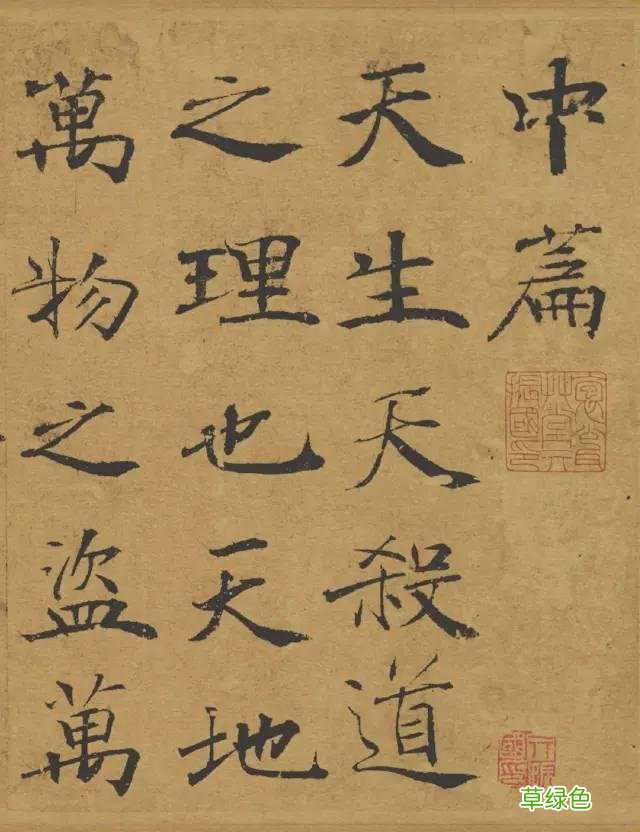 中篇
天生天殺道
之理也天地
萬物之盜萬
草绿色